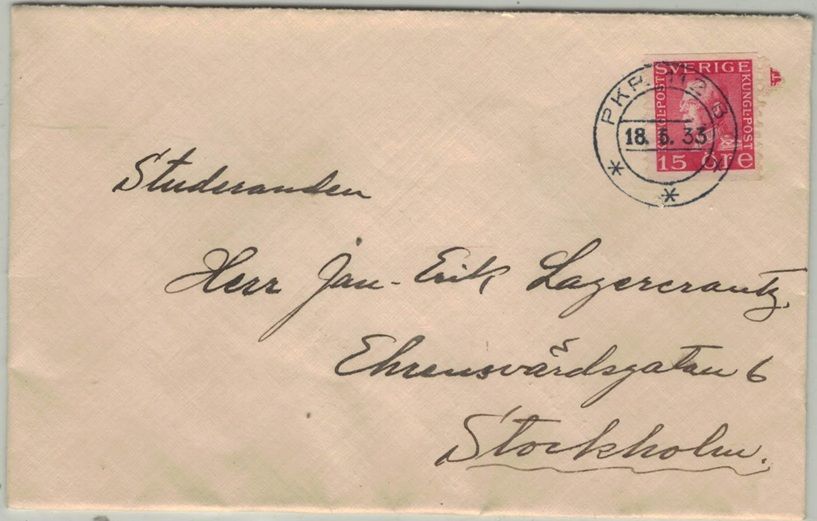 SVERIGE
KUNGL·POST
15 ÖRE
PKP.
18. 5. 33
Studeranden
Herr Jan-Erik Lagercrantz.
Ehrensvärdsgatan 6
Stockholm.